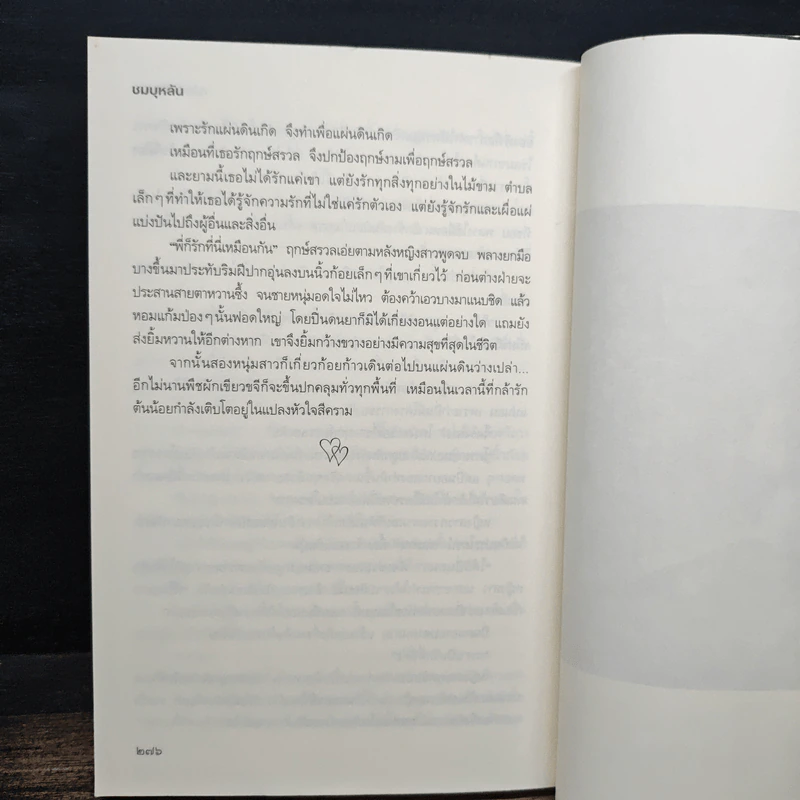 ชมบุหลัน
เพราะรักแผ่นดินเกิด จึงทำเพื่อแผ่นดินเกิด
เหมือนที่เธอรักฤกษ์สรวล จึงปกป้องฤกษ์งามเพื่อฤกษ์สรวล
และยามนี้เธอไม่ได้รักแค่เขา แต่ยังรักทุกสิ่งทุกอย่างในไม้ขาม ตำบล
เล็กๆ ที่ทำให้เธอได้รู้จักความรักที่ไม่ใช่แค่รักตัวเอง แต่ยังรู้จักรักและเผื่อแผ่
แบ่งปันไปถึงผู้อื่นและสิ่งอื่น
“พี่ก็รักที่นี่เหมือนกัน” ฤกษ์สรวลเอ่ยตามหลังหญิงสาวพูดจบ พลางยกมือ
บางขึ้นมาประทับริมฝีปากอุ่นลงบนนิ้วก้อยเล็กๆ ที่เขาเกี่ยวไว้ ก่อนต่างฝ่ายจะ
ประสานสายตาหวานซึ้ง จนชายหนุ่มอดใจไม่ไหว ต้องคว้าเอวบางมาแนบชิด แล้ว
หอมแก้มป่องๆ นั้นฟอดใหญ่ โดยปิ่นดนยาก็มิได้เกี่ยงงอนแต่อย่างใด แถมยัง
ส่งยิ้มหวานให้อีกต่างหาก เขาจึงยิ้มกว้างขวางอย่างมีความสุขที่สุดในชีวิต
จากนั้นสองหนุ่มสาวก็เกี่ยวก้อยก้าวเดินต่อไปบนแผ่นดินว่างเปล่า...
อีกไม่นานพืชผักเขียวขจีก็จะขึ้นปกคลุมทั่วทุกพื้นที่ เหมือนในเวลานี้ที่กล้ารัก
ต้นน้อยกำลังเติบโตอยู่ในแปลงหัวใจสีคราม
๒๗๖